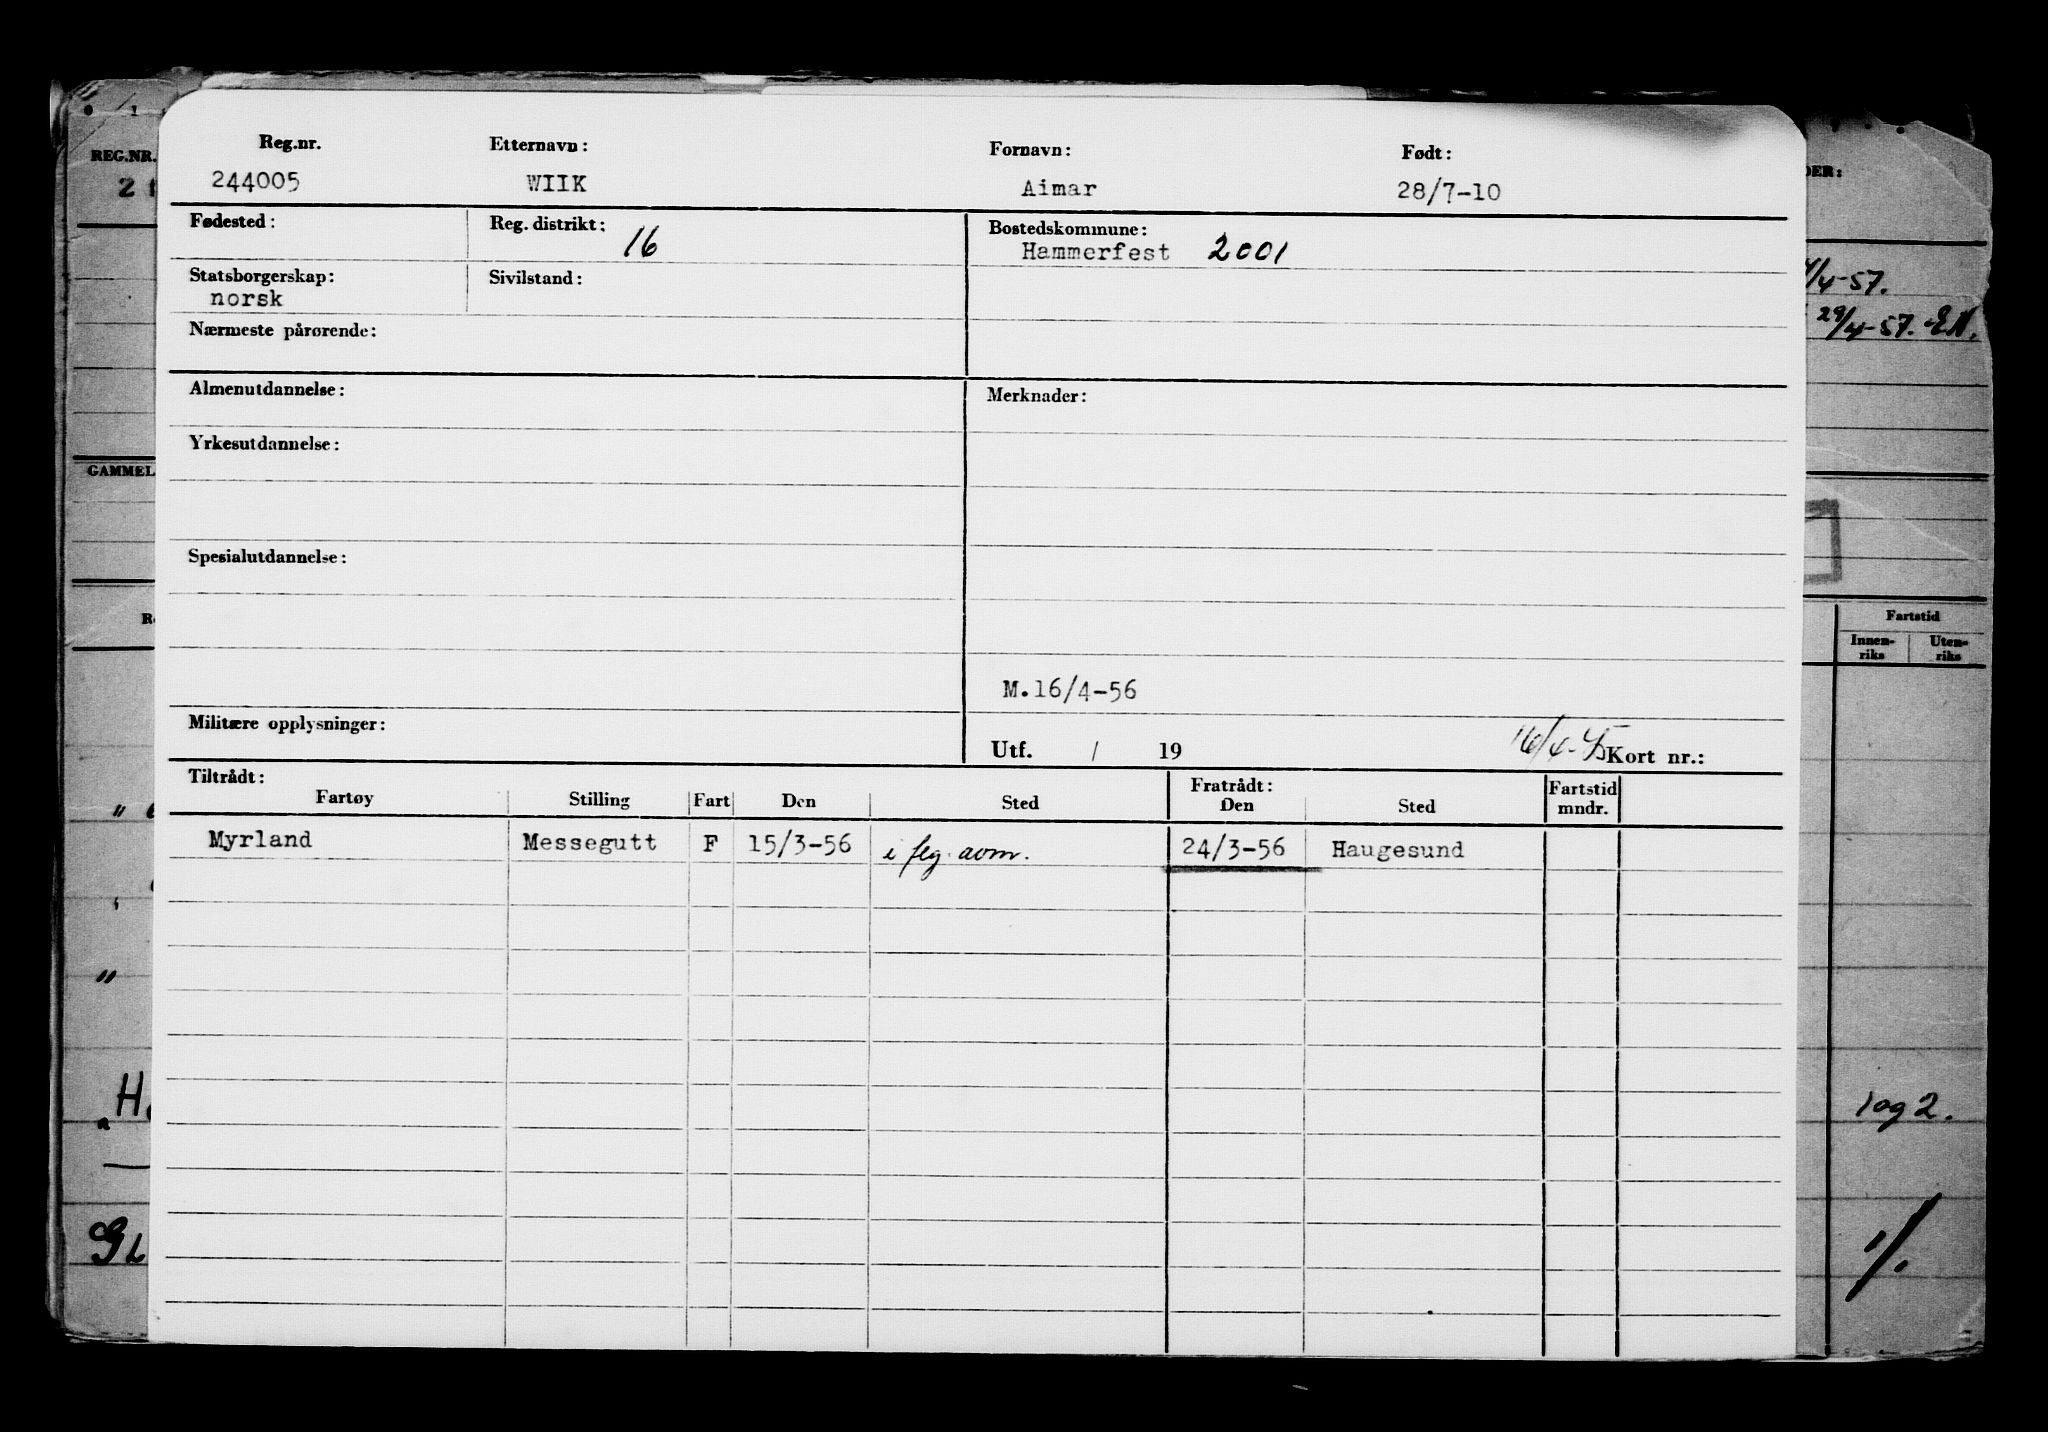 Reg.nr. Etternavn: Fornavn: Født:
244005 WIIK Aimar 28/7-10
Fødested: Reg. distrikt: 16 Bostedskommune:
Hammerfest 2001
Statsborgerskap: Sivilstand:
norsk
Nærmeste pårørende:
Almenutdannelse: Merknader:
Yrkesutdannelse:
Spesialutdannelse:
M.16/4-56
Militære opplysninger:
Utf. / 19 Kort nr.:
Tiltrådt: Fratrådt:
Fartøy Stilling Fart Den Sted Den Sted Fartstid mndr.
Myrland Messegutt F 15/3-56 i flg. avm. 24/3-56 Haugesund
REG.NR.
2
GAMMEL
/4-57.
29/4-57. EN.
Fartstid
Innen-riks Uten-riks
1 og 2.
1/.